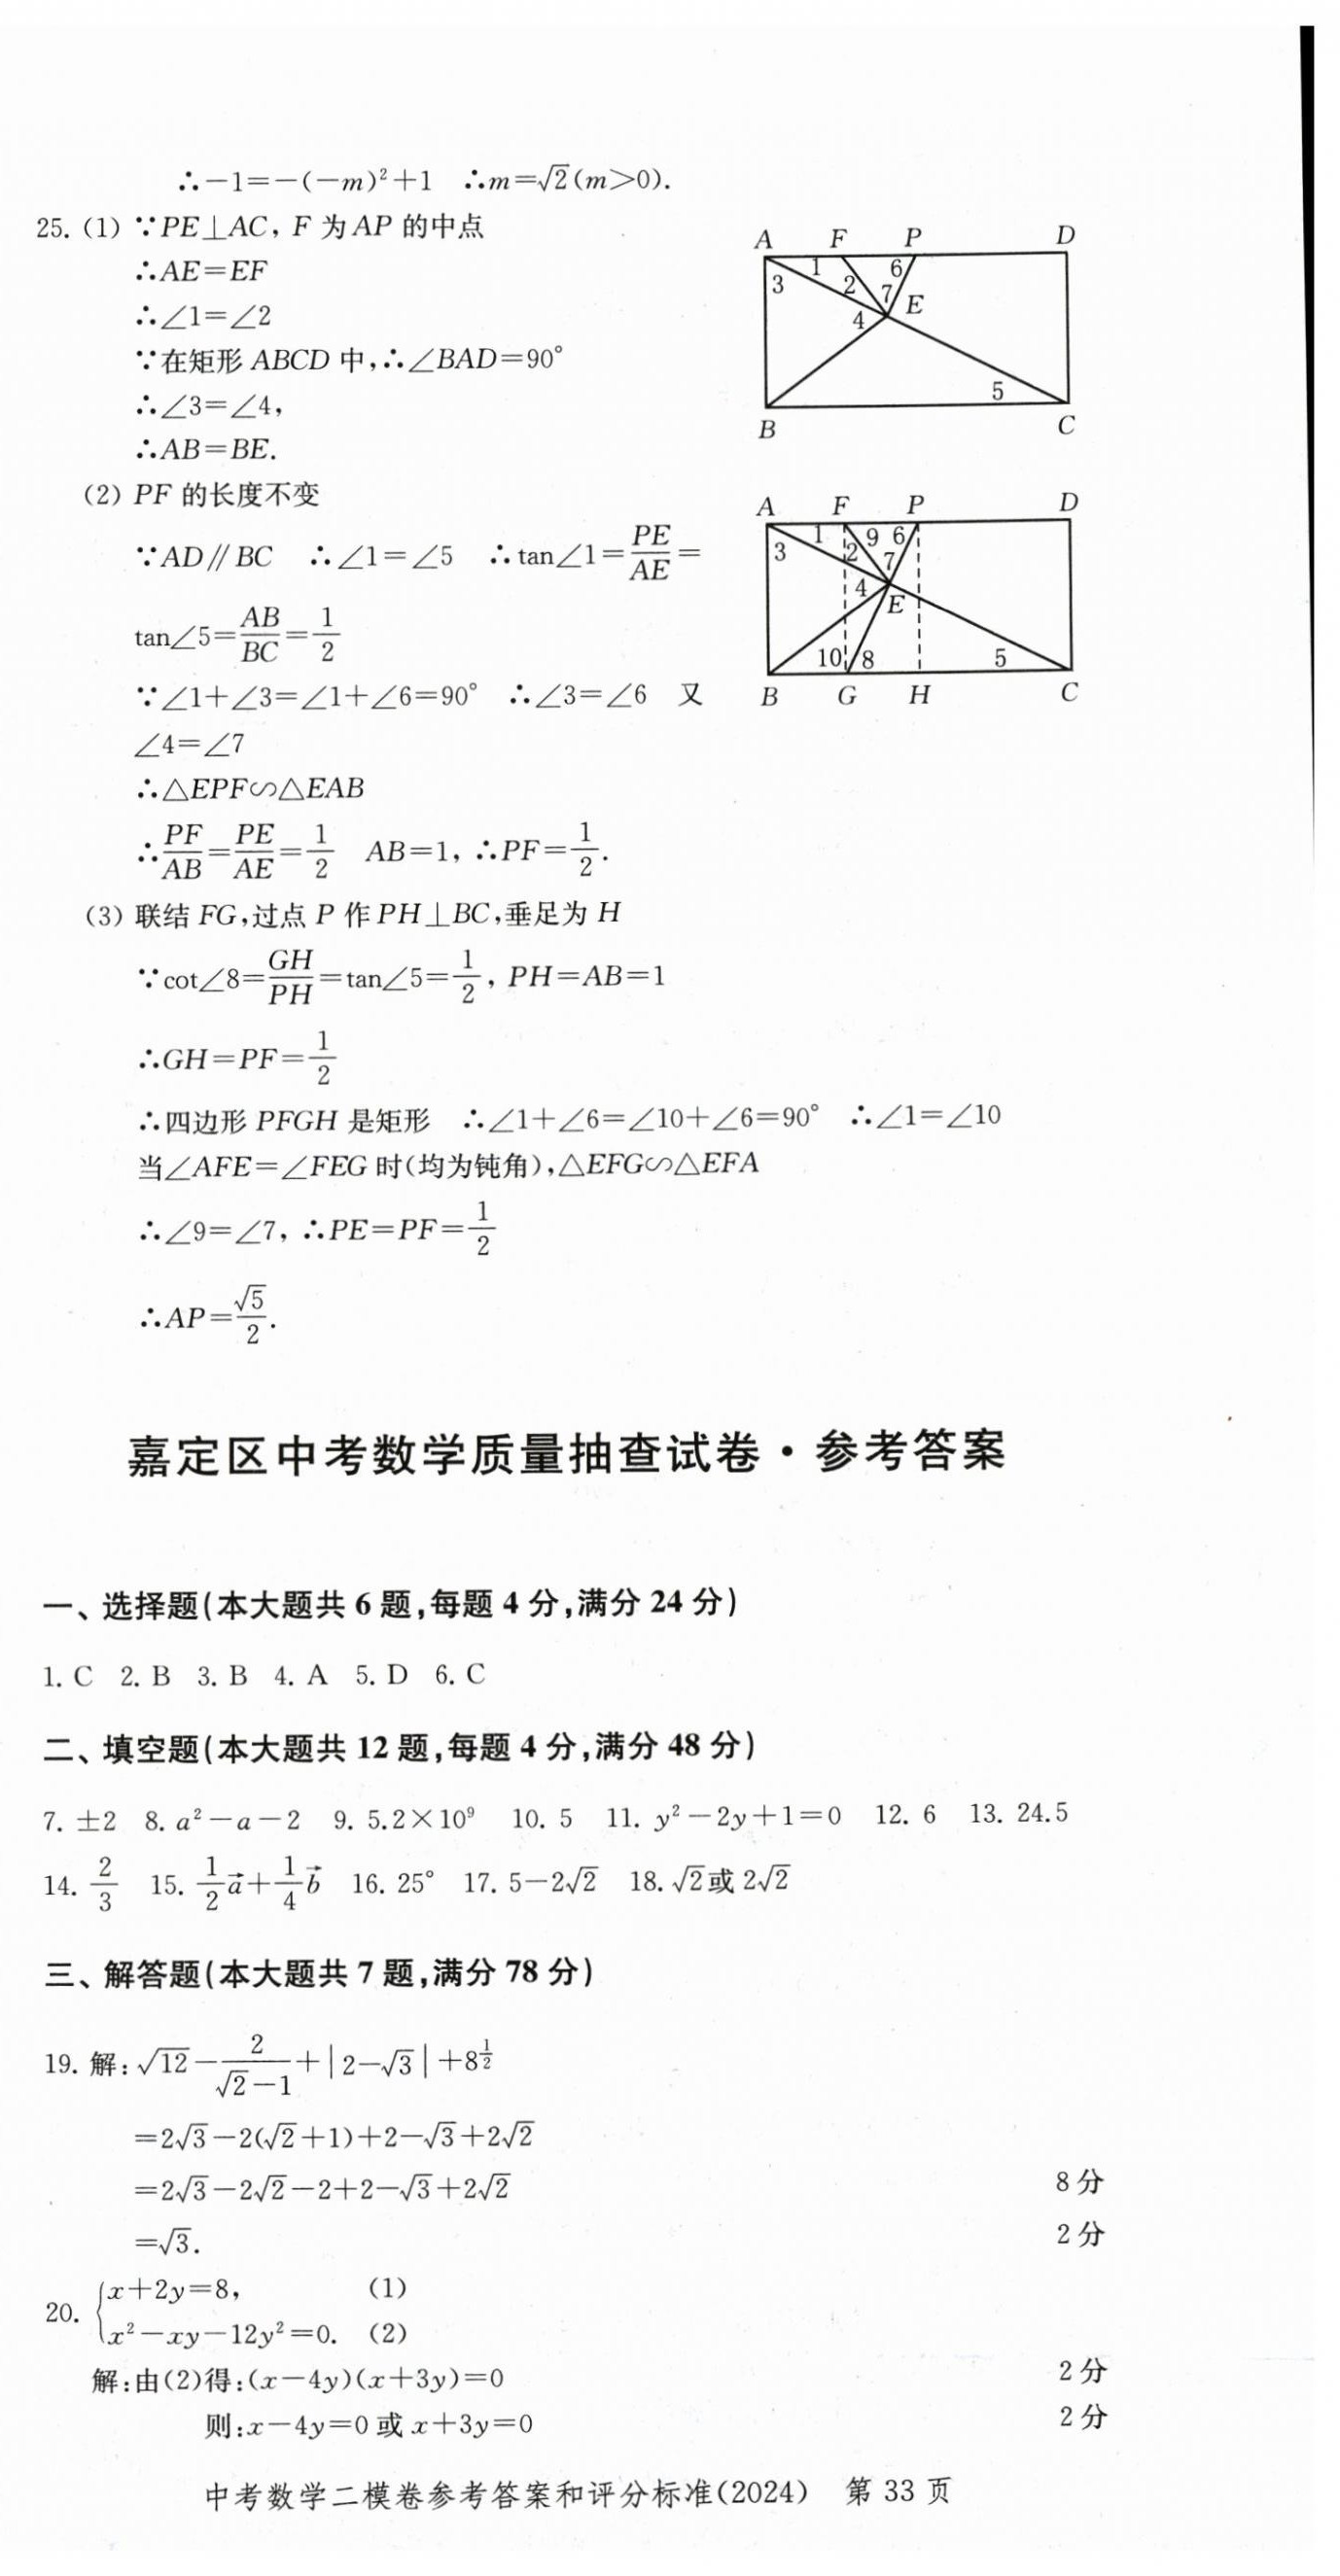 ∴－1＝－(－m)²＋1 ∴m＝√2(m＞0).
25. (1) ∵PE⊥AC, F 为 AP 的中点
∴AE＝EF
∴∠1＝∠2
∵在矩形 ABCD 中,∴∠BAD＝90°
∴∠3＝∠4,
∴AB＝BE.
A F P D
1 6
3 2 7 E
4
5
B C
(2) PF 的长度不变
∵AD∥BC ∴∠1＝∠5 ∴tan∠1＝PE/AE＝
tan∠5＝AB/BC＝1/2
∵∠1＋∠3＝∠1＋∠6＝90° ∴∠3＝∠6 又
∠4＝∠7
∴△EPF∽△EAB
∴PF/AB＝PE/AE＝1/2 AB＝1, ∴PF＝1/2.
A F P D
1 9 6
3 2 7
4 E
10 8 5
B G H C
(3) 联结 FG,过点 P 作 PH⊥BC,垂足为 H
∵cot∠8＝GH/PH＝tan∠5＝1/2, PH＝AB＝1
∴GH＝PF＝1/2
∴四边形 PFGH 是矩形 ∴∠1＋∠6＝∠10＋∠6＝90° ∴∠1＝∠10
当∠AFE＝∠FEG 时(均为钝角),△EFG∽△EFA
∴∠9＝∠7, ∴PE＝PF＝1/2
∴AP＝√5/2.
嘉定区中考数学质量抽查试卷·参考答案
一、选择题(本大题共 6 题,每题 4 分,满分 24 分)
1. C 2. B 3. B 4. A 5. D 6. C
二、填空题(本大题共 12 题,每题 4 分,满分 48 分)
7. ±2 8. a²－a－2 9. 5.2×10⁹ 10. 5 11. y²－2y＋1＝0 12. 6 13. 24.5
14. 2/3 15. 1/2 a⃗＋1/4 b⃗ 16. 25° 17. 5－2√2 18. √2或 2√2
三、解答题(本大题共 7 题,满分 78 分)
19. 解:√12－2/(√2－1)＋|2－√3|＋8^(1/2)
＝2√3－2(√2＋1)＋2－√3＋2√2
＝2√3－2√2－2＋2－√3＋2√2 8 分
＝√3. 2 分
20. { x＋2y＝8, (1)
x²－xy－12y²＝0. (2)
解:由(2)得:(x－4y)(x＋3y)＝0 2 分
则:x－4y＝0 或 x＋3y＝0 2 分
中考数学二模卷参考答案和评分标准(2024) 第 33 页